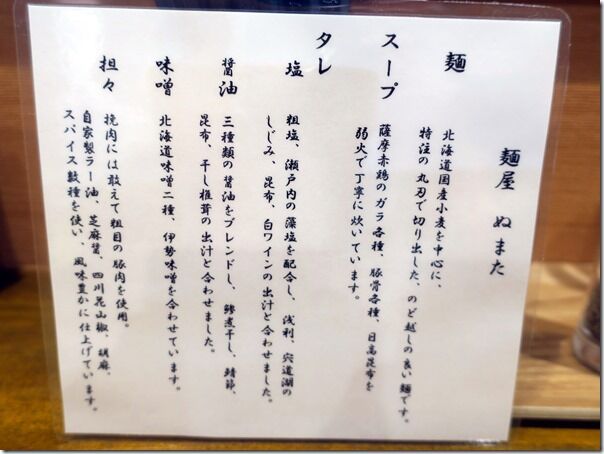 麺屋 ぬまた
麺
北海道国産小麦を中心に、
特注の丸刃で切り出した、のど越しの良い麺です。
スープ
薩摩赤鶏のガラ各種、豚骨各種、日高昆布を
弱火で丁寧に炊いています。
タレ
塩
粗塩、瀬戸内の藻塩を配合し、浅利、宍道湖の
しじみ、昆布、白ワインの出汁と合わせました。
醤油
三種類の醤油をブレンドし、鯵煮干し、鯖節、
昆布、干し椎茸の出汁と合わせました。
味噌
北海道味噌二種、伊勢味噌を合わせています。
担々
挽肉には敢えて粗目の豚肉を使用。
自家製ラー油、芝麻醤、四川花山椒、胡麻、
スパイス数種を使い、風味豊かに仕上げています。